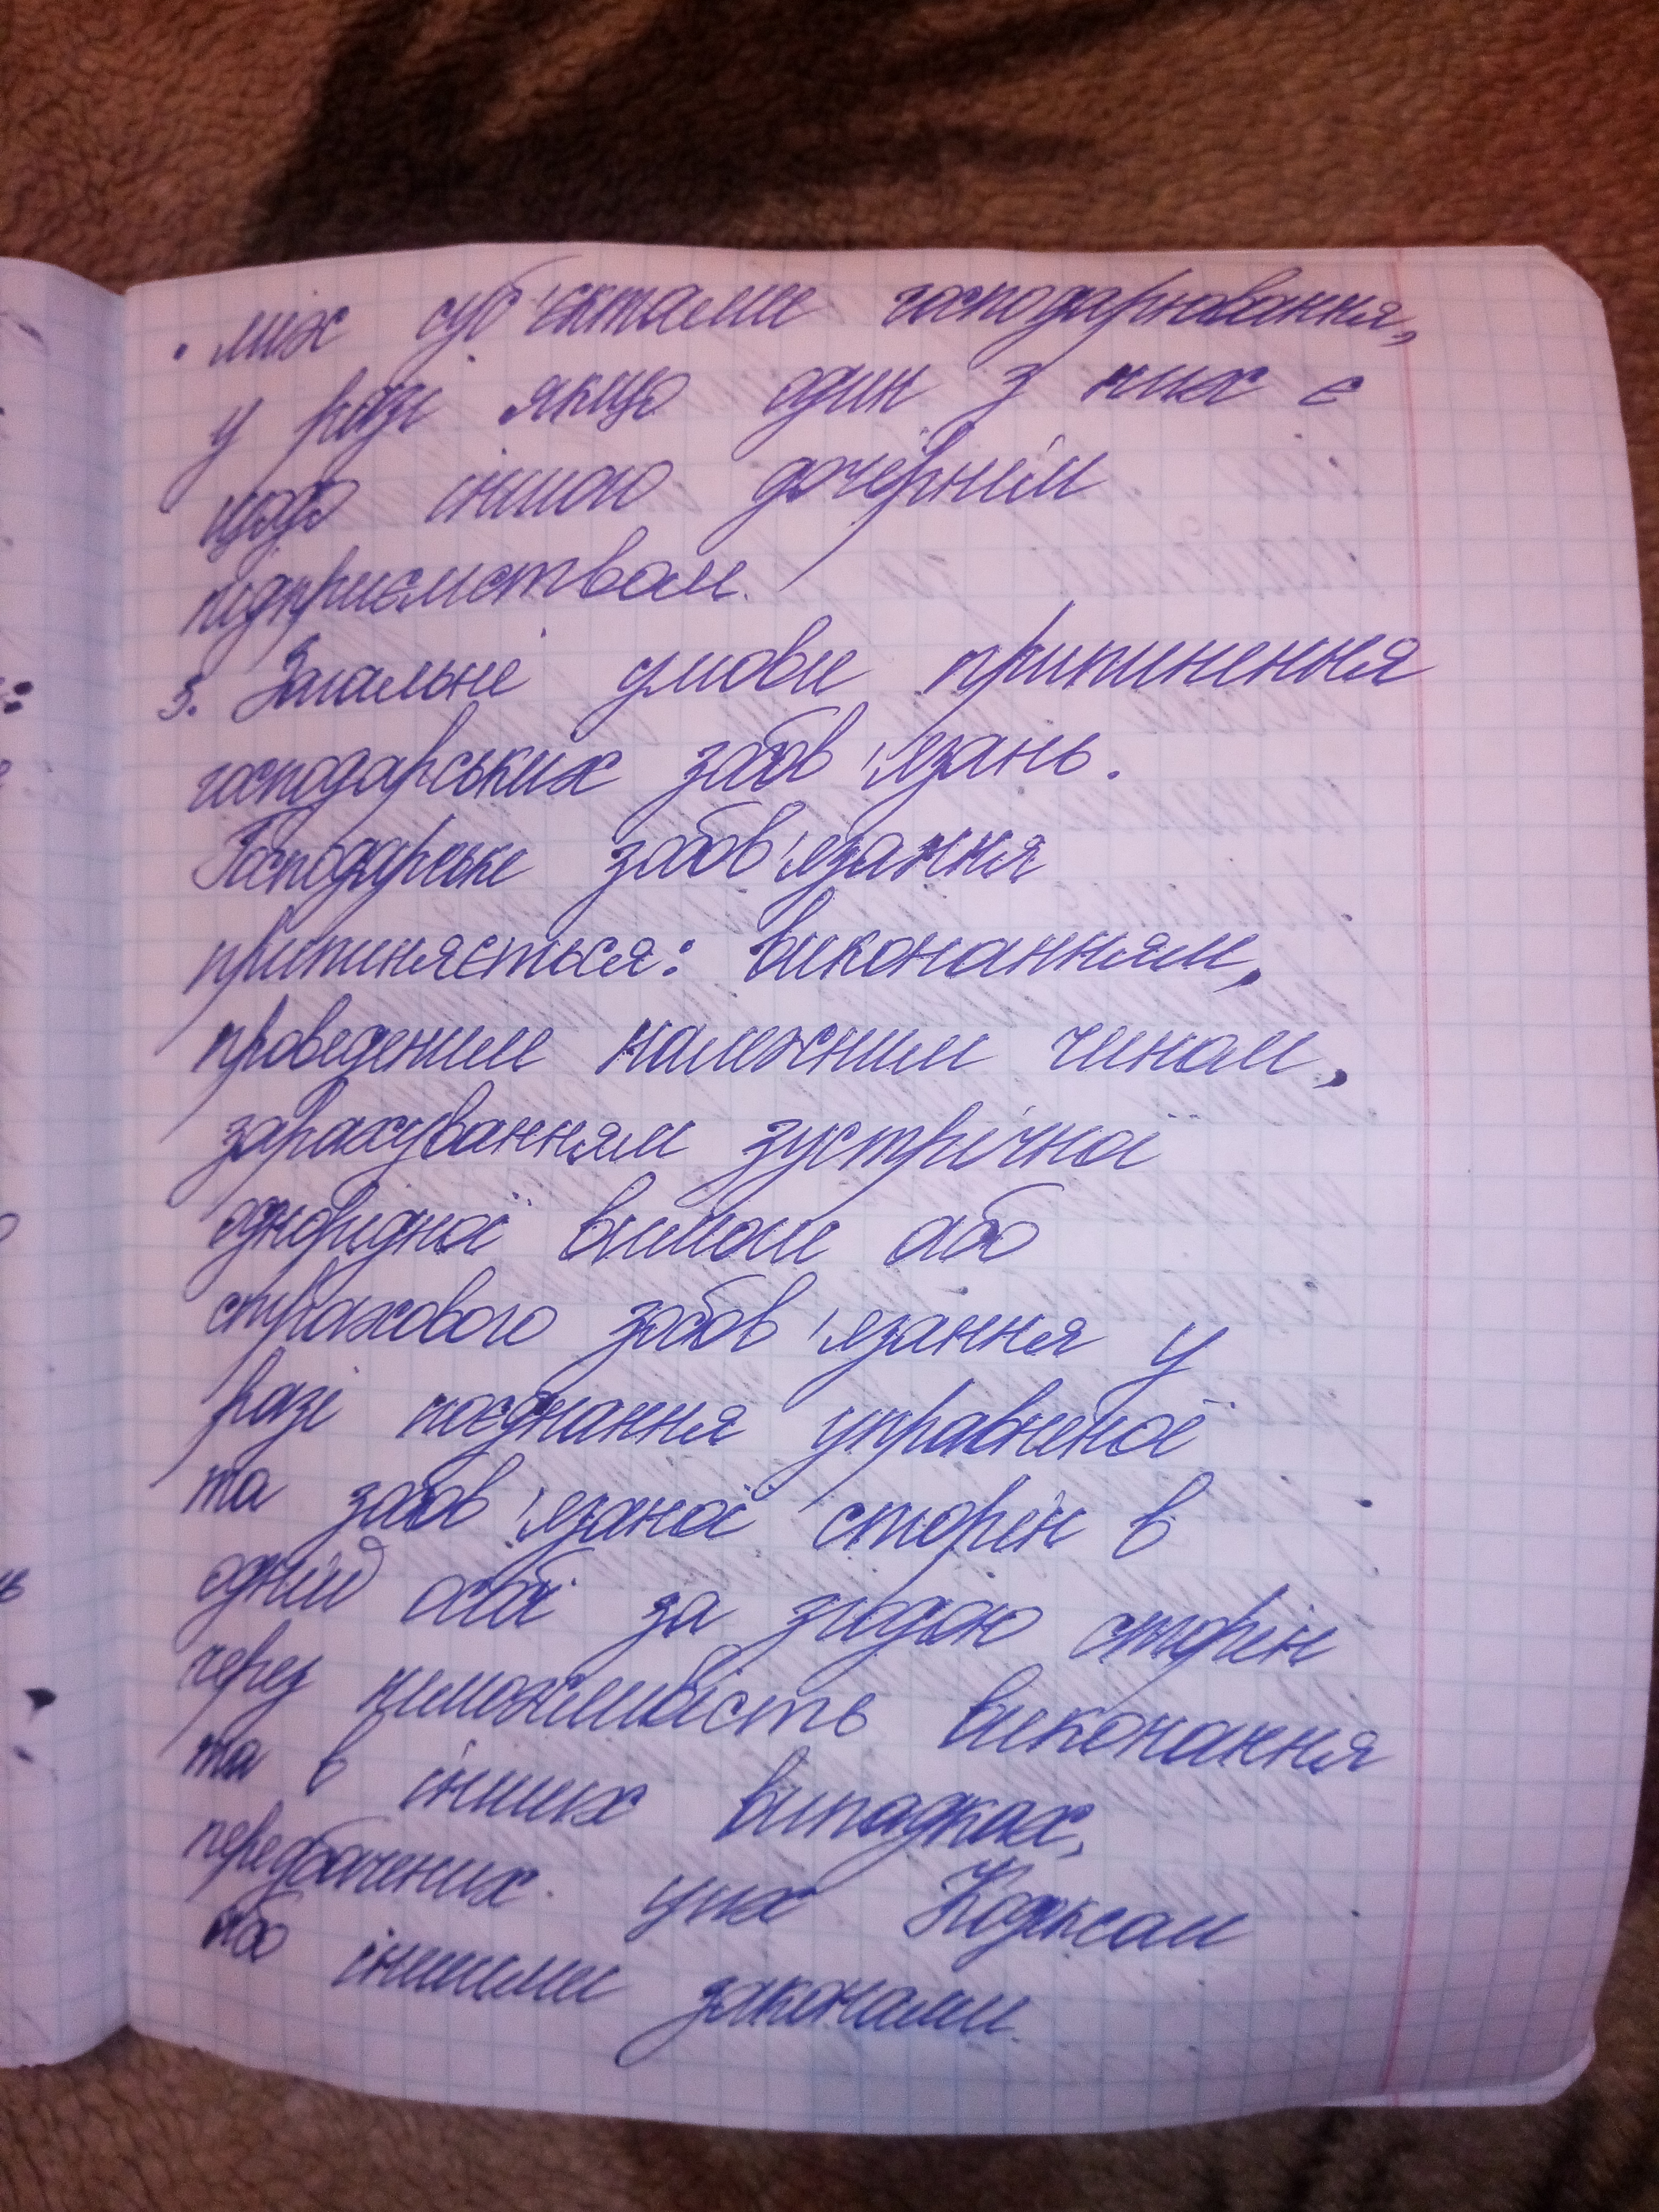 · між суб'єктами господарювання,
у разі якщо один з них є
щодо іншого дочірнім
підприємством.
3. Загальні умови припинення
господарських зобов'язань.
Господарське зобов'язання
припиняється: виконанням,
проведеним належним чином,
зарахуванням зустрічної
однорідної вимоги або
страхового зобов'язання у
разі поєднання управненої
та зобов'язаної сторін в
одній особі за згодою сторін
через неможливість виконання
та в інших випадках,
передбачених Кодексом
або іншими законами.